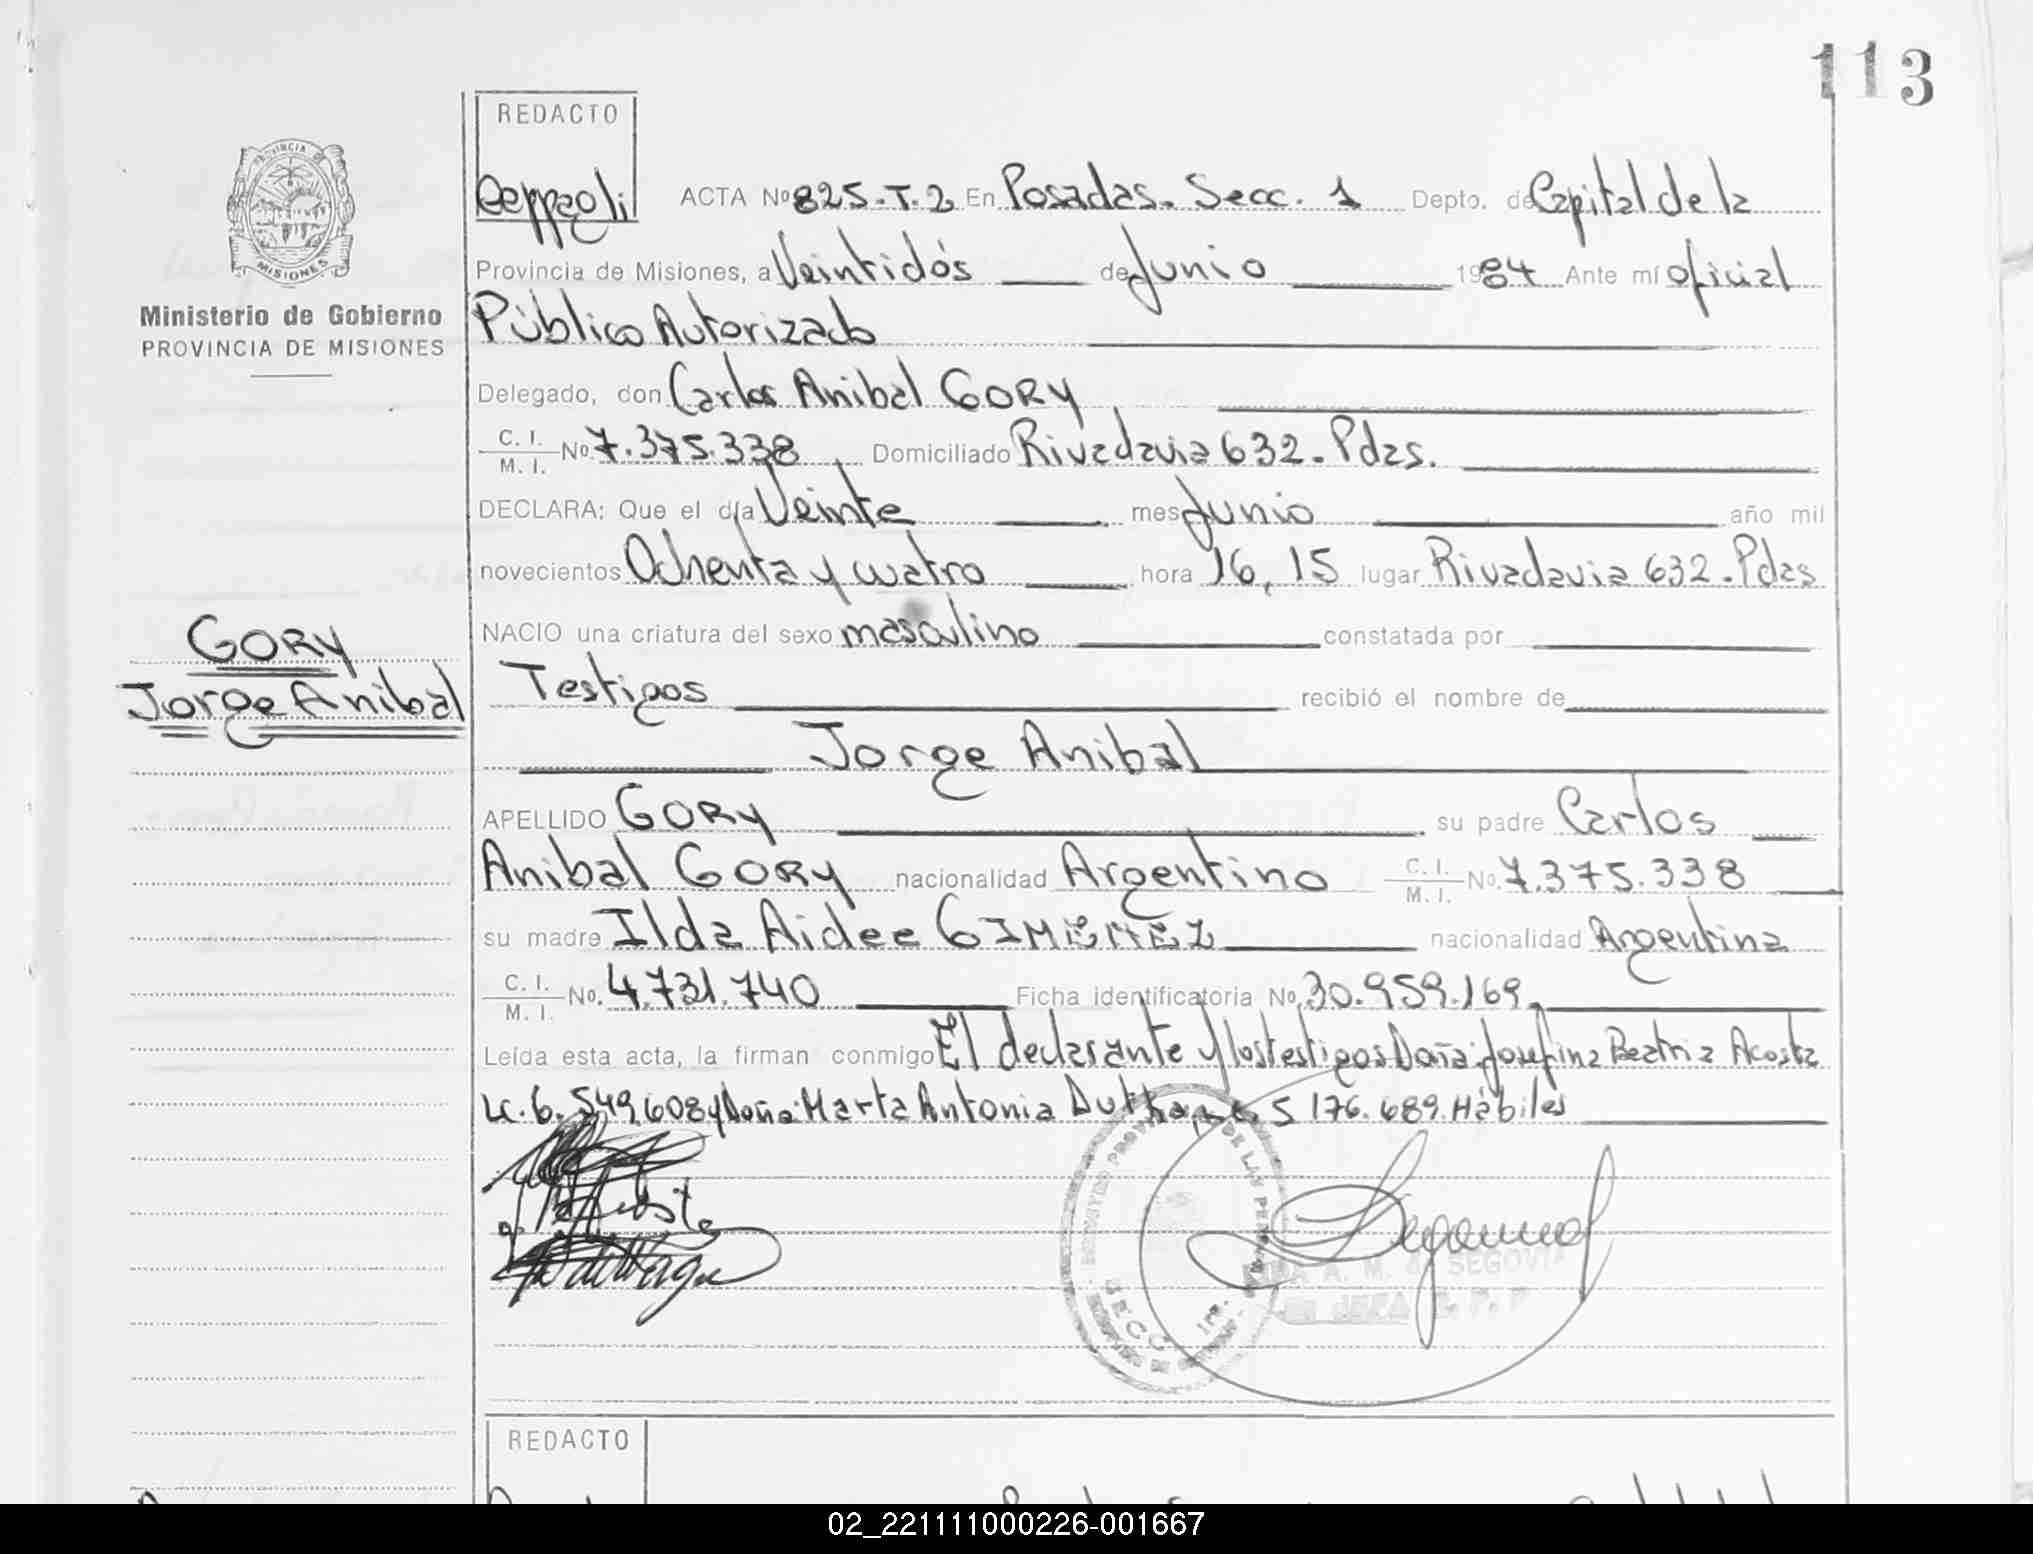 113
REDACTO
PROVINCIA DE
MISIONES
Ministerio de Gobierno
PROVINCIA DE MISIONES
ACTA Nº 825.T.2 En Posadas. Secc. 1 Depto. de Capital de la
Provincia de Misiones, a Veintidós de Junio 1984 Ante mí oficial
Público Autorizado
Delegado, don Carlos Anibal GORY
C. I. M. I. Nº 7.375.338 Domiciliado Rivadavia 632. Pdas.
DECLARA: Que el día Veinte mes Junio año mil
novecientos Ochenta y cuatro hora 16,15 lugar Rivadavia 632. Pdas
NACIO una criatura del sexo masculino constatada por
Testigos recibió el nombre de
Jorge Anibal
GORY
Jorge Anibal
APELLIDO GORY su padre Carlos
Anibal GORY nacionalidad Argentino C. I. M. I. Nº 7.375.338
su madre Ilda Aidee GIMENEZ nacionalidad Argentina
C. I. M. I. No. 4.731.740 Ficha identificatoria Nº 30.959.169.
Leída esta acta, la firman conmigo El declarante y los testigos Doña: Josefina Beatriz Acosta
LC. 6.549.608 y Doña: Marta Antonia 5 176.689. Hábiles
DE LAS
SECC
A. M. de SEGOVIA
JEFA
REDACTO
02_221111000226-001667